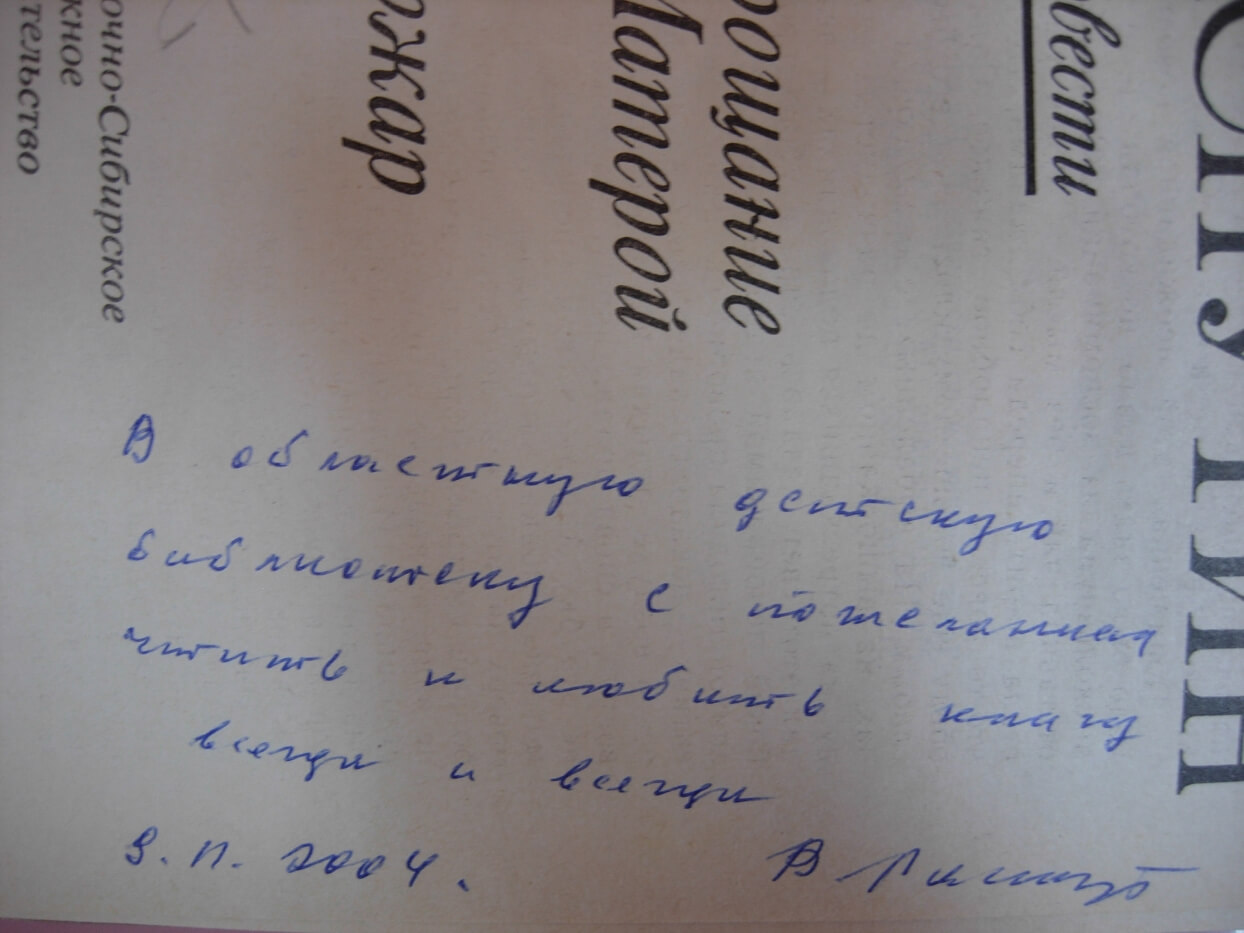 СПУТИН
овести
рощание
Матерой
ожар
очно-Сибирское
жное
тельство
В областную детскую
библиотеку с пожеланием
чтить и любить книгу
всегда и всегда
9.11.2004.
В Распут